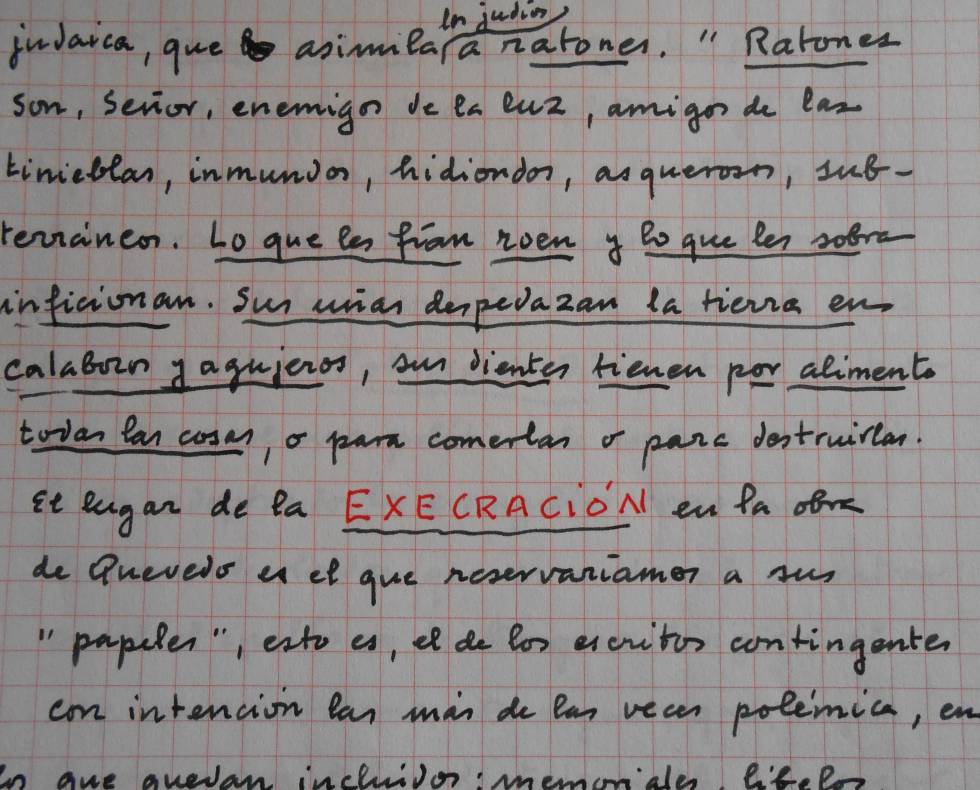 los judíos
judaica, que asimila a ratones. " Ratones
son, Señor, enemigos de la luz, amigos de las
tinieblas, inmundos, hidiondos, asquerosos, sub-
terráneos. Lo que les fían roen y lo que les sobra
inficionan. Sus uñas despedazan la tierra en
calabozos y agujeros, sus dientes tienen por alimento
todas las cosas, o para comerlas o para destruirlas.
El lugar de la EXECRACIÓN en la obra
de Quevedo es el que reservaríamos a sus
"papeles", esto es, el de los escritos contingentes
con intención las más de las veces polémica, en
los que quedan incluidos: memoriales, libelos